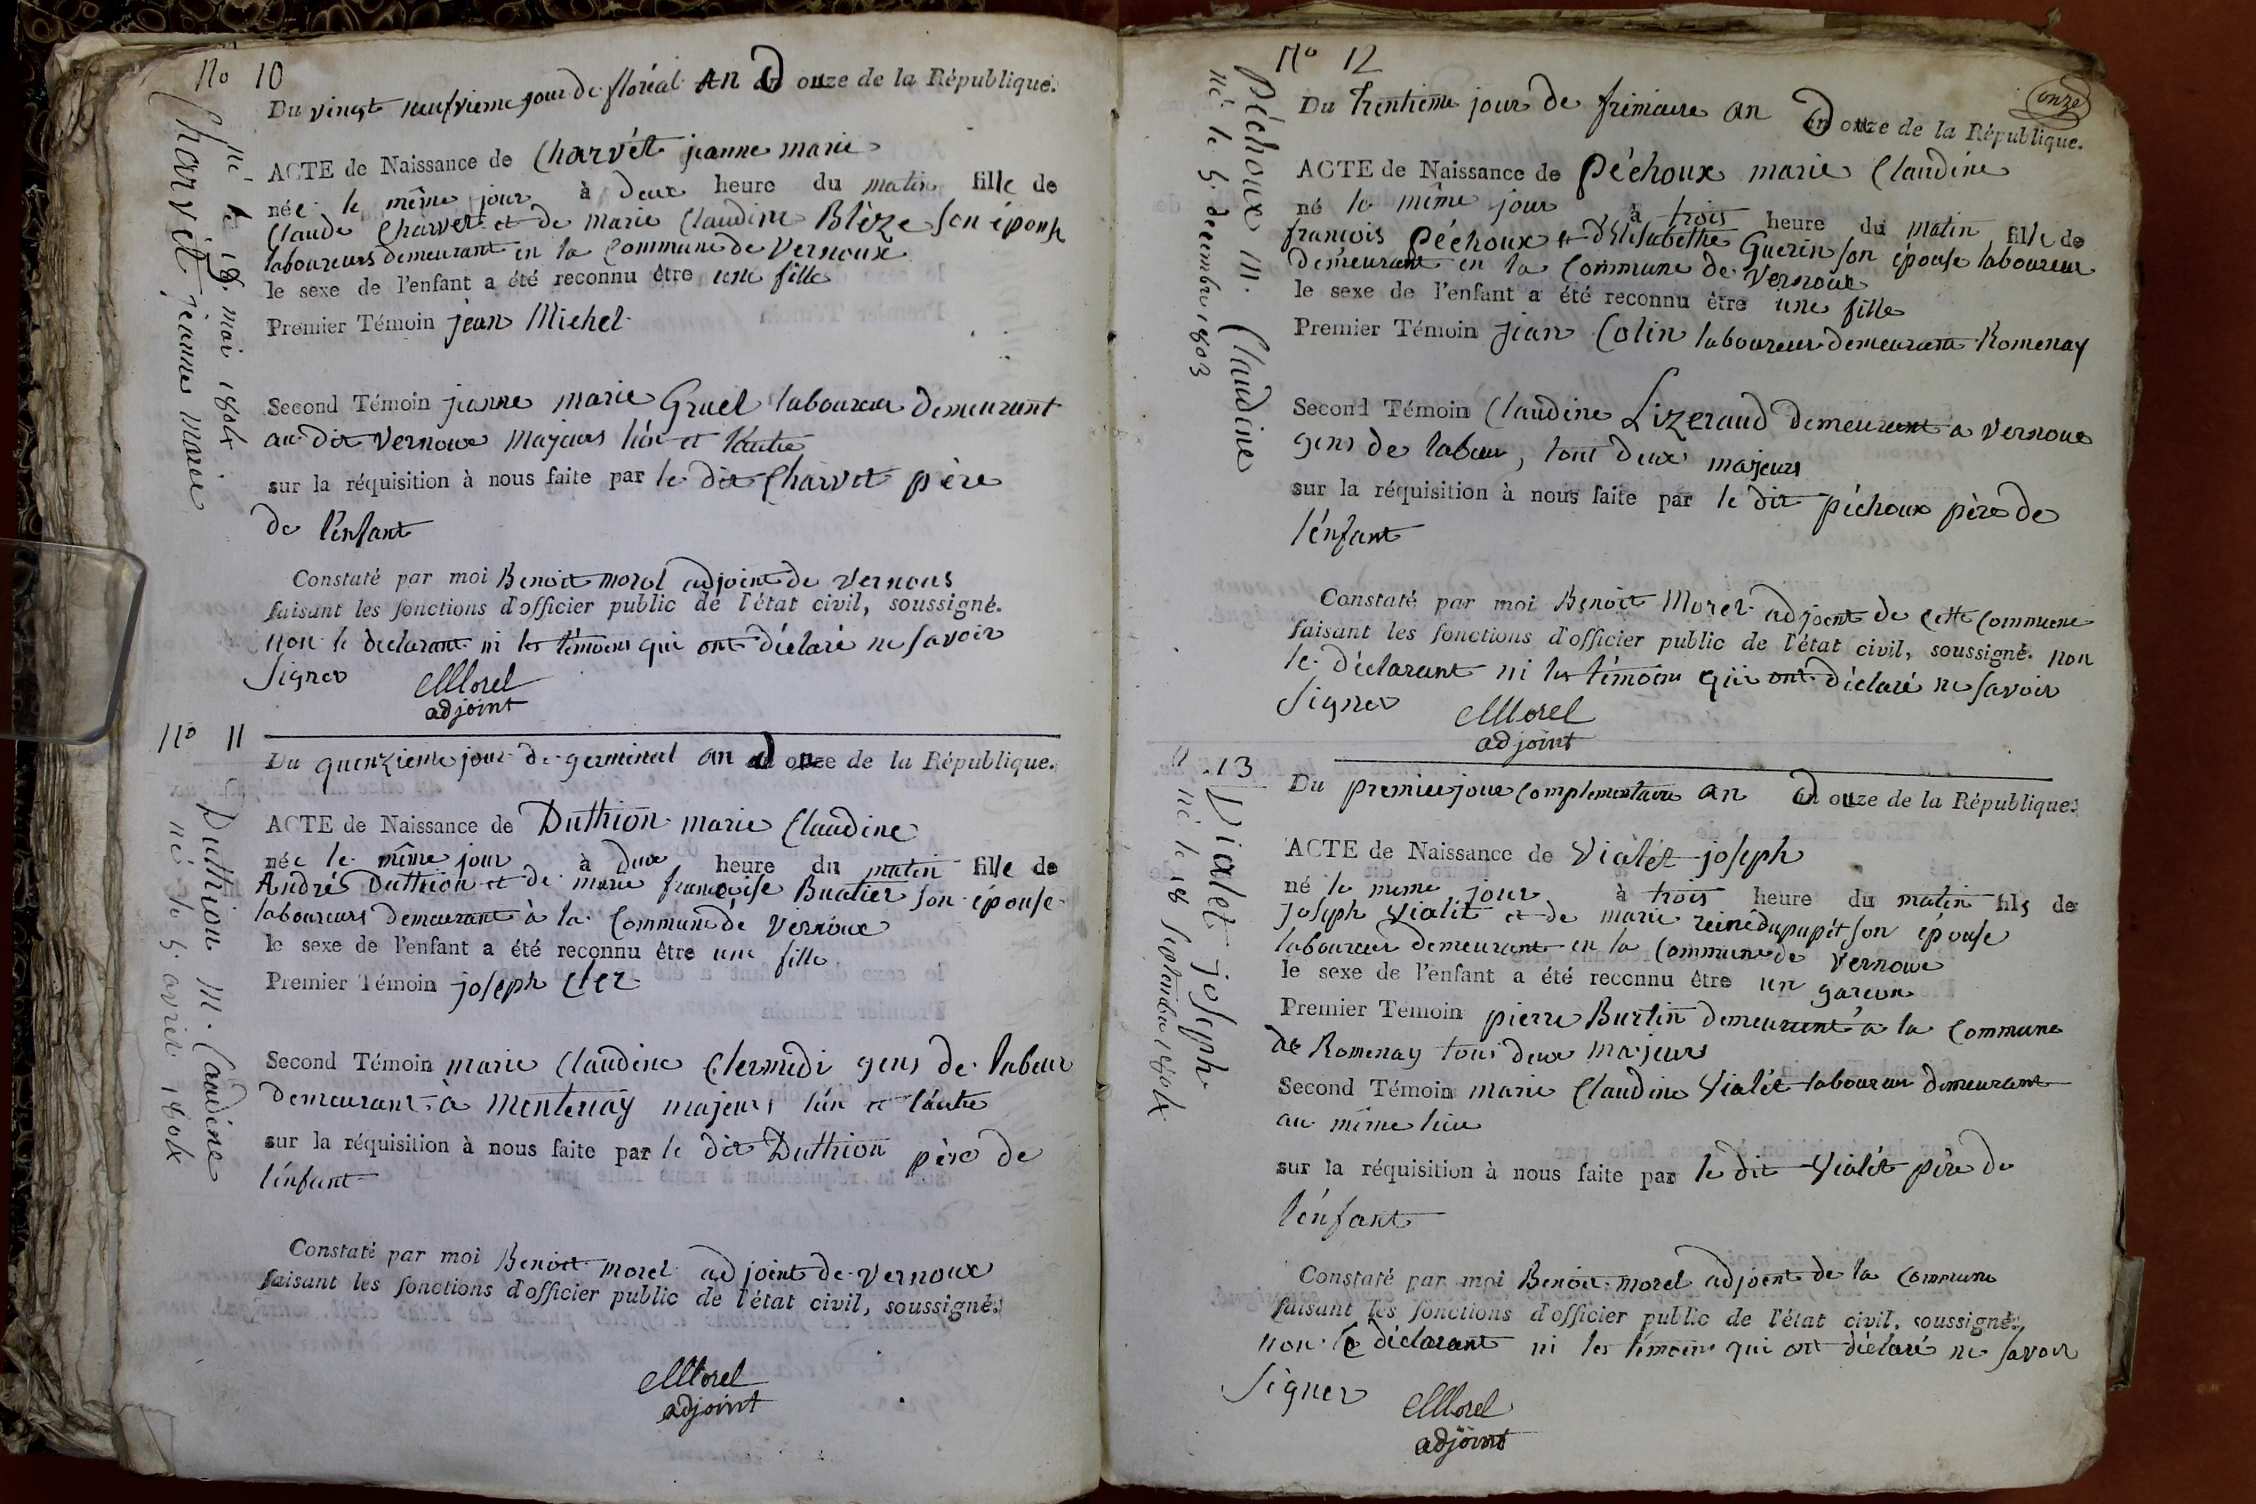 No 10
Du vingt neufvieme jour de floréal An douze de la République.
Charvét jeanne marie
né le 19 mai 1804
ACTE de Naissance de Charvét jeanne marie
née le même jour à deux heure du matin fille de
Claude Charvet et de marie Claudine Blèze son épouse
laboureurs demeurant en la Commune de Vernoux
le sexe de l'enfant a été reconnu être une fille
Premier Témoin jean Michel
Second Témoin jeanne marie Gruel laboureur demeurant
au dit Vernoux majeurs l'un et l'autre
sur la réquisition à nous faite par le dit Charvet père
de l'enfant
Constaté par moi Benoit morel adjoint de Vernoux
faisant les fonctions d'officier public de l'état civil, soussigné.
non le declarant ni les témoins qui ont déclaré ne savoir
signer
Morel
adjoint
No 11
Du quenzieme jour de germinal an douze de la République.
Duthion M. Caudine
né le 5 avrier 1804
ACTE de Naissance de Duthion marie Claudine
née le même jour à deux heure du matin fille de
Andrés Duthion et de marie francoise Buatier son épouse
laboureurs demeurant à la Commune de Vernoux
le sexe de l'enfant a été reconnu être une fille
Premier Témoin joseph Clér
Second Témoin marie Claudine Clermidi gens de labeur
demeurant à Montenay majeurs l'un et l'autre
sur la réquisition à nous faite par le dit Duthion père de
l'enfant
Constaté par moi Benoit morel adjoint de Vernoux
faisant les fonctions d'officier public de l'état civil, soussigné.
Morel
adjoint
No 12
onze
Du trentieme jour de frimaire an douze de la République.
Péchoux M. Claudine
né le 5 décembre 1803
ACTE de Naissance de Péchoux marie Claudine
né le même jour à trois heure du matin fille de
françois Péchoux et d'Elisabethe Guerin son épouse laboureur
demeurant en la Commune de Vernoux
le sexe de l'enfant a été reconnu être une fille
Premier Témoin jean Colin laboureur demeurant Romenay
Second Témoin Claudine Lizeraud demeurant a Vernoux
gens de labeur, tout deux majeurs
sur la réquisition à nous faite par le dit péchoux père de
l'énfant
Constaté par moi Benoit Morel adjoint de cette commune
faisant les fonctions d'officier public de l'état civil, soussigné. non
le déclarant ni les témoins qui ont déclaré ne savoir
signer
Morel
adjoint
13
Du premier jour complementaire an douze de la République.
Vialet joseph
né le 18 septembre 1804
ACTE de Naissance de Vialét joseph
né le meme jour à trois heure du matin fils de
joseph Vialét et de marie reine dupupét son épouse
laboureur demeurant en la Commune de Vernoux
le sexe de l'enfant a été reconnu être un garcon
Premier Temoin pierre Burtin demeurant a la Commune
de Romenay tous deux majeurs
Second Témoin marie Claudine Vialét laboureur demeurant
au même lieu
sur la réquisition à nous faite par le dit Vialét père de
l'énfant
Constaté par moi Benoit morel adjoint de la commune
faisant les fonctions d'officier public de l'état civil, soussigné.
non le déclarant ni les témoins qui ont déclaré ne savoir
signer
Morel
adjoint